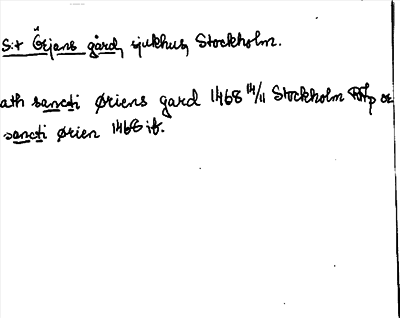 S:t Örjans gård, sjukhus, Stockholm.
ath sancti Øriens gard 1468 14/11 Stockholm RAp or
sancti Ørien 1468 ib.